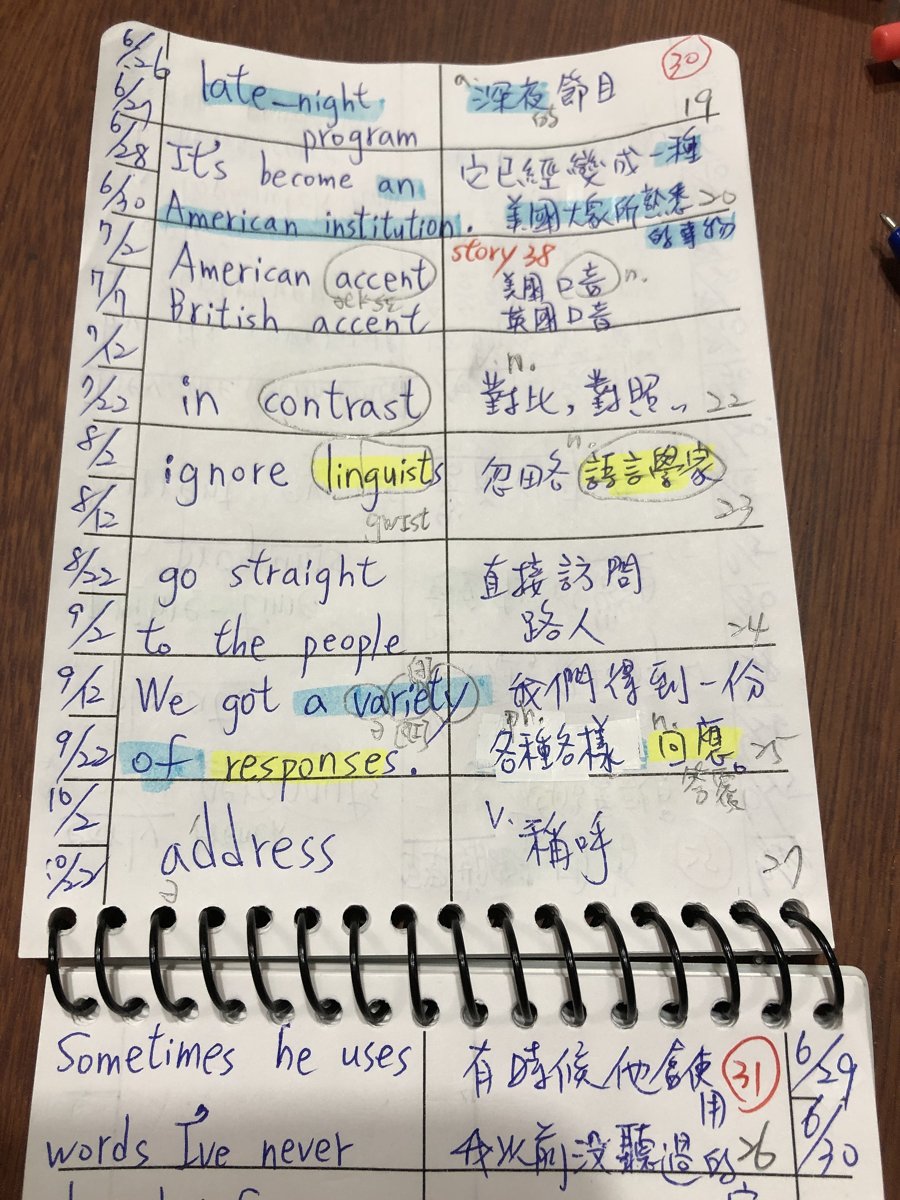 6/26
6/27
6/28
6/30
7/2
7/7
7/12
7/22
8/2
8/12
8/22
9/2
9/12
9/22
10/2
10/22
30
late-night
program
a.
深夜節目
的
19
It's become an
American institution.
它已經變成一種
美國大眾所熟悉 20
的事物
American accent
British accent
story 38
美國口音 n.
英國口音
in contrast
n.
對比,對照 .. 22
ignore linguists
gwIst
n.
忽略 語言學家
23
go straight
to the people
直接訪問
路人
24
We got a variety
of responses.
我們得到一份
ph. n.
各種各樣 回應。 25
答覆
address
v.
稱呼
27
Sometimes he uses
words I've never
有時候他會使
用
我以前沒聽過的 26
31
6/29
6/30